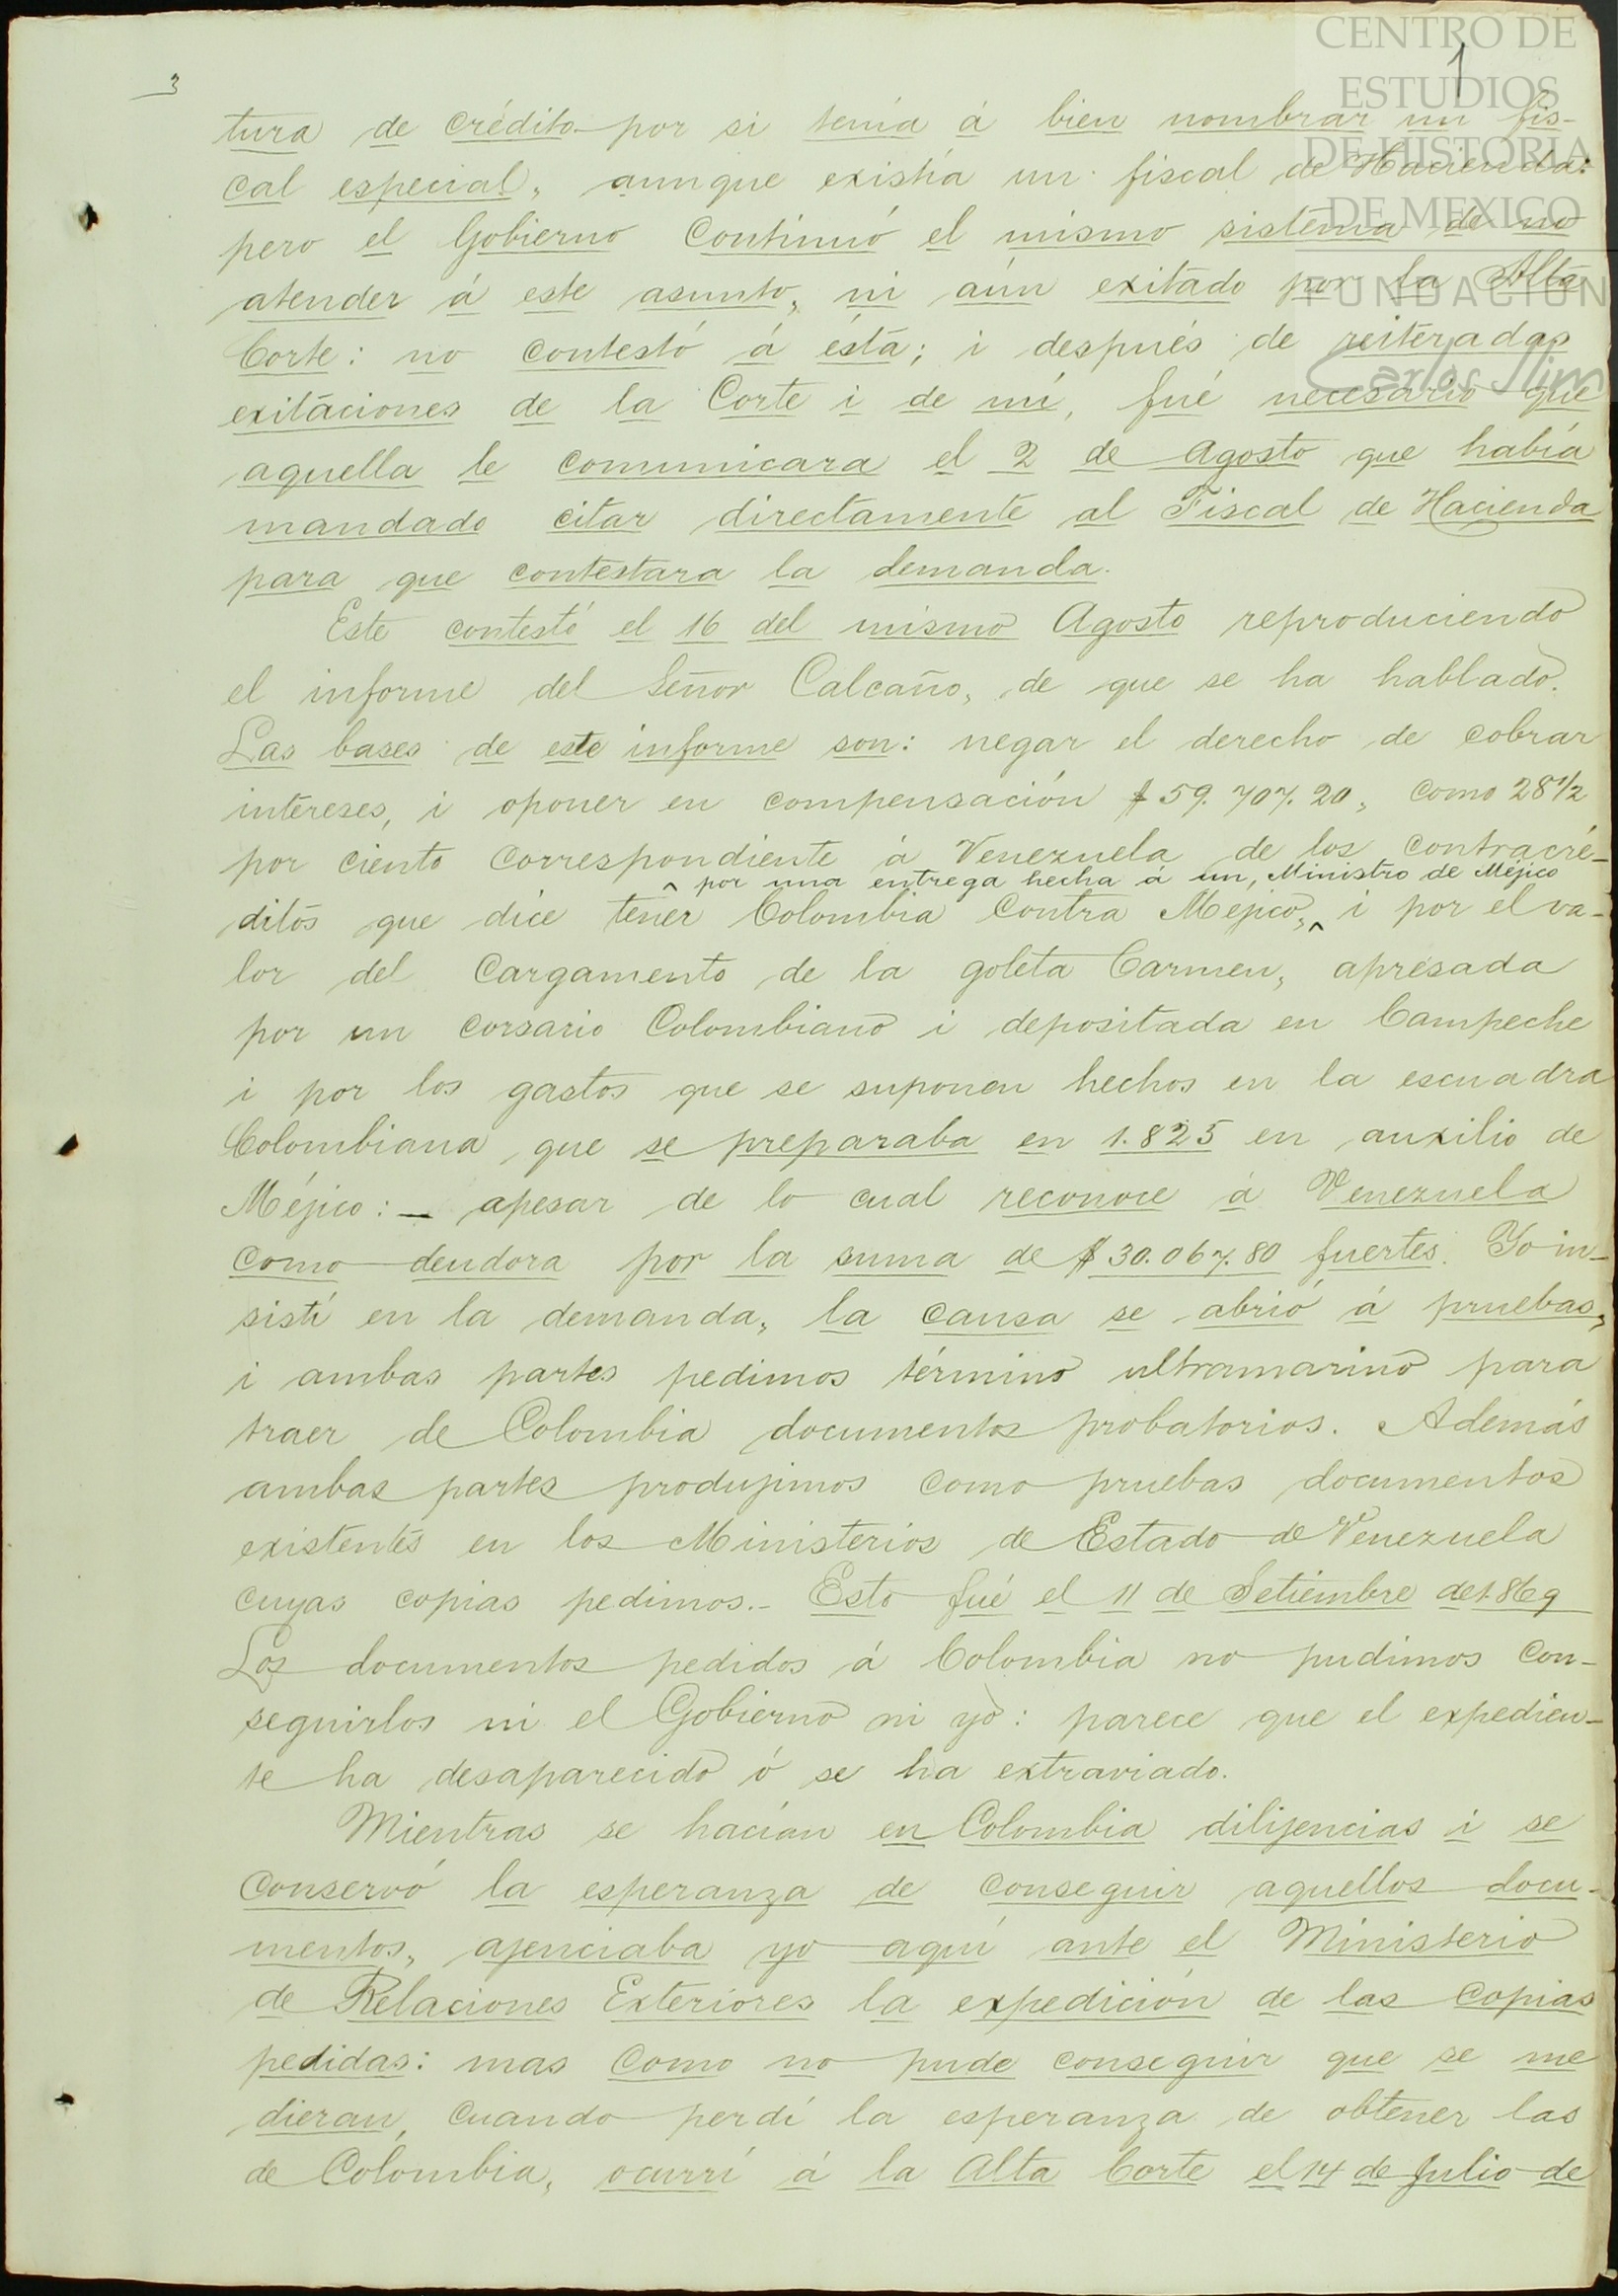 CENTRO DE
ESTUDIOS
DE HISTORIA
DE MEXICO
FUNDACION
Carlos Slim
3
1
tura de crédito por si tenía á bien nombrar un fis-
cal especial, aunque existía un fiscal de Hacienda:
pero el Gobierno continuó el mismo sistema de no
atender á este asunto, ni aún exitado por la Alta
Corte: no contestó á ésta; i después de reiteradas
exitaciones de la Corte i de mí, fué necesario que
aquella le comunicara el 2 de Agosto que había
mandado citar directamente al Fiscal de Hacienda
para que contestara la demanda.
Este contestó el 16 del mismo Agosto reproduciendo
el informe del Señor Calcaño, de que se ha hablado.
Las bases de este informe son: negar el derecho de cobrar
intereses, i oponer en compensación $ 59.707.20, como 28 1/2
por ciento correspondiente á Venezuela de los contracré-
^ por una entrega hecha á un, Ministro de Méjico
ditos que dice tener Colombia contra Méjico,^ i por el va-
lor del cargamento de la goleta Carmen, apresada
por un corsario Colombiano i depositada en Campeche
i por los gastos que se suponen hechos en la escuadra
Colombiana que se preparaba en 1.825 en auxilio de
Méjico:— apesar de lo cual reconoce á Venezuela
como deudora por la suma de $ 30.067.80 fuertes. Yo in-
sistí en la demanda, la causa se abrió á pruebas,
i ambas partes pedimos término ultramarino para
traer de Colombia documentos probatorios. Además
ambas partes produjimos como pruebas documentos
existentes en los Ministerios de Estado de Venezuela
cuyas copias pedimos.- Esto fué el 11 de Setiembre de 1.869
Los documentos pedidos á Colombia no pudimos con-
seguirlos ni el Gobierno ni yo: parece que el expedien-
te ha desaparecido ó se ha extraviado.
Mientras se hacían en Colombia dilijencias i se
conservó la esperanza de conseguir aquellos docu-
mentos, ajenciaba yo aquí ante el Ministerio
de Relaciones Exteriores la expedición de las copias
pedidas: mas como no pude conseguir que se me
dieran, cuando perdí la esperanza de obtener las
de Colombia, ocurrí á la Alta Corte el 14 de Julio de